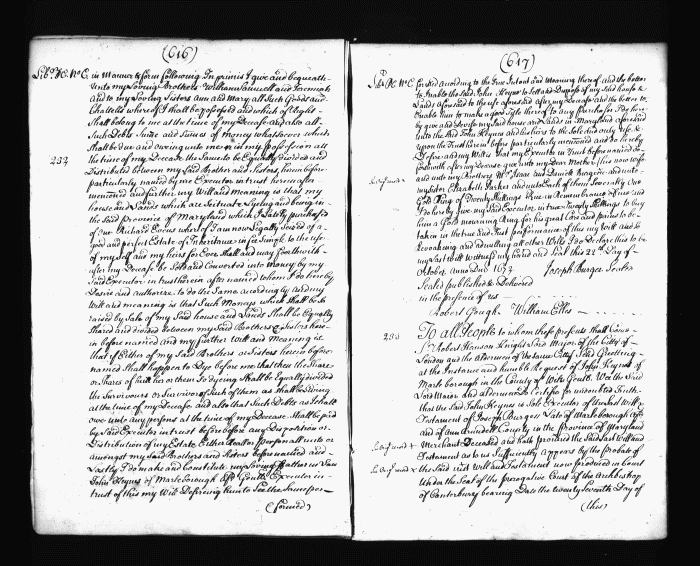 (616)
Lib: W.C. No. E. in Manner & form following. In primis I give and bequeath
unto my Loving Brothers William Samuell and Jeremiah
and to my Loving Sisters Ann and Mary all Such Goods and
Chattells whereof I shall be possessed and which of Right
Shall belong to me at the time of my Decease and also all
Such Debts Sume and Sumes of Money whatsoever which
Shall be due and owing unto me or in my possession att
233
the time of my Decease the Same to be Equally divided and
Distributed between my Said Brother and Sisters herein before
particularly named by me Executor in trust hereinafter
mentioned and further my Will and Meaning is that my
house and Lands which are Scituate Lying and being in
the Said Province of Maryland which I lately purchased
of one Richard Ewens whereof I am now Legally Seized of a
good and perfect Estate of Inheritance in fee Simple to the use
of my Self and my heirs for Ever Shall and may forthwith
after my Decease be Sold and Converted into Money by my
Said Executor in trust herein after named whom I do hereby
Desire and authorize to do the Same accordingly and my
Will and meaning is that Such Moneys which shall be
raised by Sale of my Said house and Lands Shall be Equally
Shared and divided between my Said Brothers & Sisters here
in before named and my further Will and Meaning is
that if Either of my Said Brothers or Sisters herein before
named Shall happen to Dye before me that then the Share
or Shares of him her or them So dyeing Shall be Equally divided
the Survivours or Survivor of Such of them as Shall be Living
at the time of my Decease and also that Such Debts as I shall
owe unto any persons at the time of my Decease Shall be paid
by my Said Executor in trust before before any Disposition or
Distribution of my Estate Either Reall or personall unto or
amongst my Said Brothers and Sisters before named and
Lastly I do make and Constitute my Loving father in Law
John Keynes of Marleborough Esq. Gentl. Executor in
trust of this my Will Desireing him to See the Same per
(formed)
(617)
Lib: W.C. No. E. formed according to the true Intent and Meaning thereof and the better
to Enable the Said John Keynes to Sell and Dispose of my Said house &
Lands aforesaid to the use aforesaid after my Decease And the better to
Enable him to make a good Title thereof to any purchaser I do here
by give and devise my Said house and Lands in Maryland aforesaid
unto the Said John Keynes and his heirs to the Sole and only use &
upon the trust herein before particularly mentioned and I do hereby
Desire and my Will is that my Executor in Trust before named do
forthwith after my Decease give unto my Dear Mother his now wife
and unto my Brothers Mr. Isaac and Daniell Burgess and unto
my Sister Elizabeth Parker and unto Each of them Severally One
Gold Ring of Twenty Shillings Value in Remembrance of me and
I do hereby give my Said Executor in trust Twenty Shillings to buy
him a Gold mourning Ring for his great Care and pains to be
taken in the true and Just performance of this my Will and So
Revoaking and adnulling all other Wills I do Declare this to be
my Last Will Witness my hand and Seal this 22th Day of
October Anno Dno 1672 Joseph Burges Sealed
Sealed published & Delivered
in the presence of us
Robert Gough William Elles
233
To all People to whom these presents shall Come
Sr. Robert Hanson Knight Lord Major of the Citty of
London and the Aldermen of the Same Citty Send Greeting
at the Instance and humble Request of John Keynes of
Marleborough in the County of Wilts Gentl. Wee the Said
Lord Maior and Aldermen do Certifie for undoubted truth
that the Said John Keynes is Sole Executor of the Last Will &
Testament of Joseph Burgess Late of Marleborough Afsd
and of Ann Arundell County in the province of Maryland
Merchant Deceased and hath proved the Said Last Will and
Testament as to us Sufficiently appears by the probate of
the Said recd Will and Testament now produced in Court
Under the Seal of the Prerogative Court of the Archbishop
of Canterbury bearing Date the twenty Seventh Day of
(this)